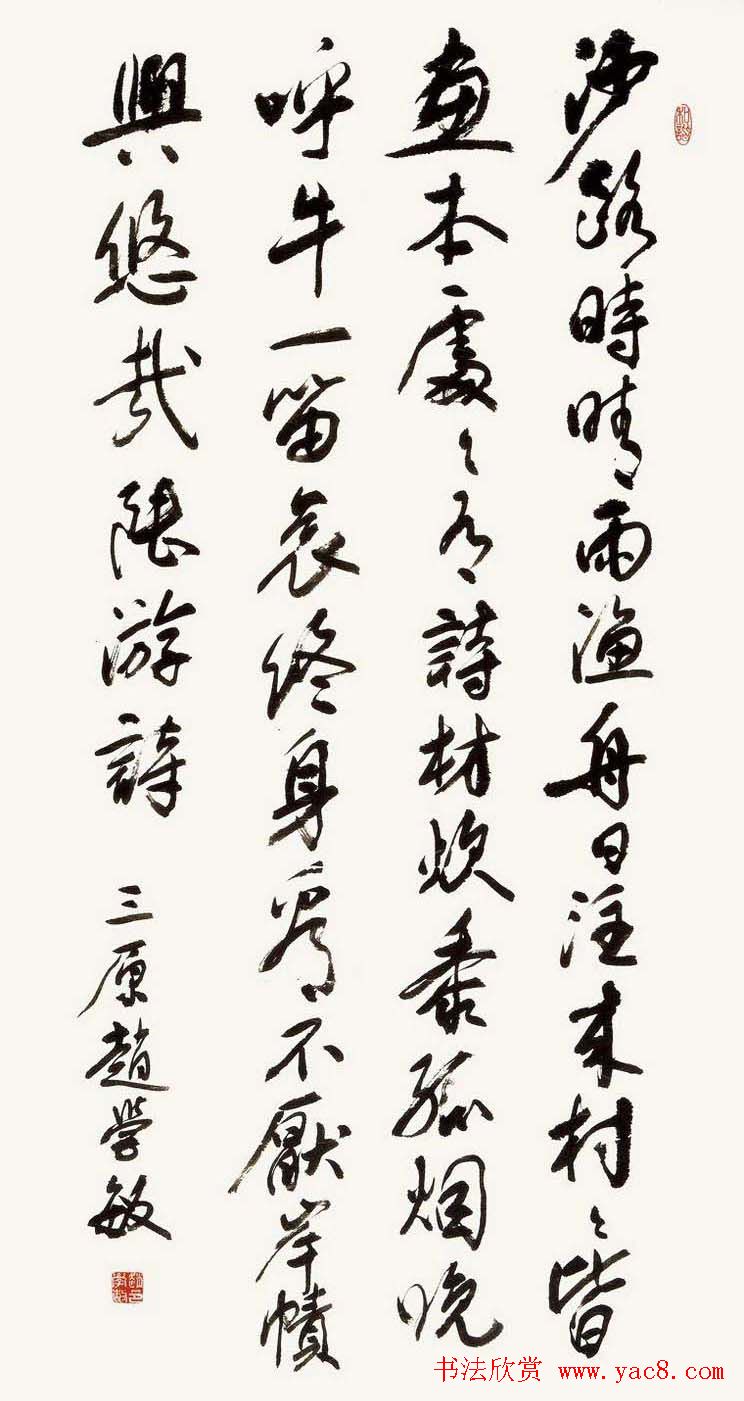 沙路時晴雨渔舟日往来村々皆
画本處々有詩材炊黍孤烟晚
呼牛一笛哀终身看不厭岸幘
興悠哉陸游詩
三原趙學敏
书法欣赏 www.yac8.com